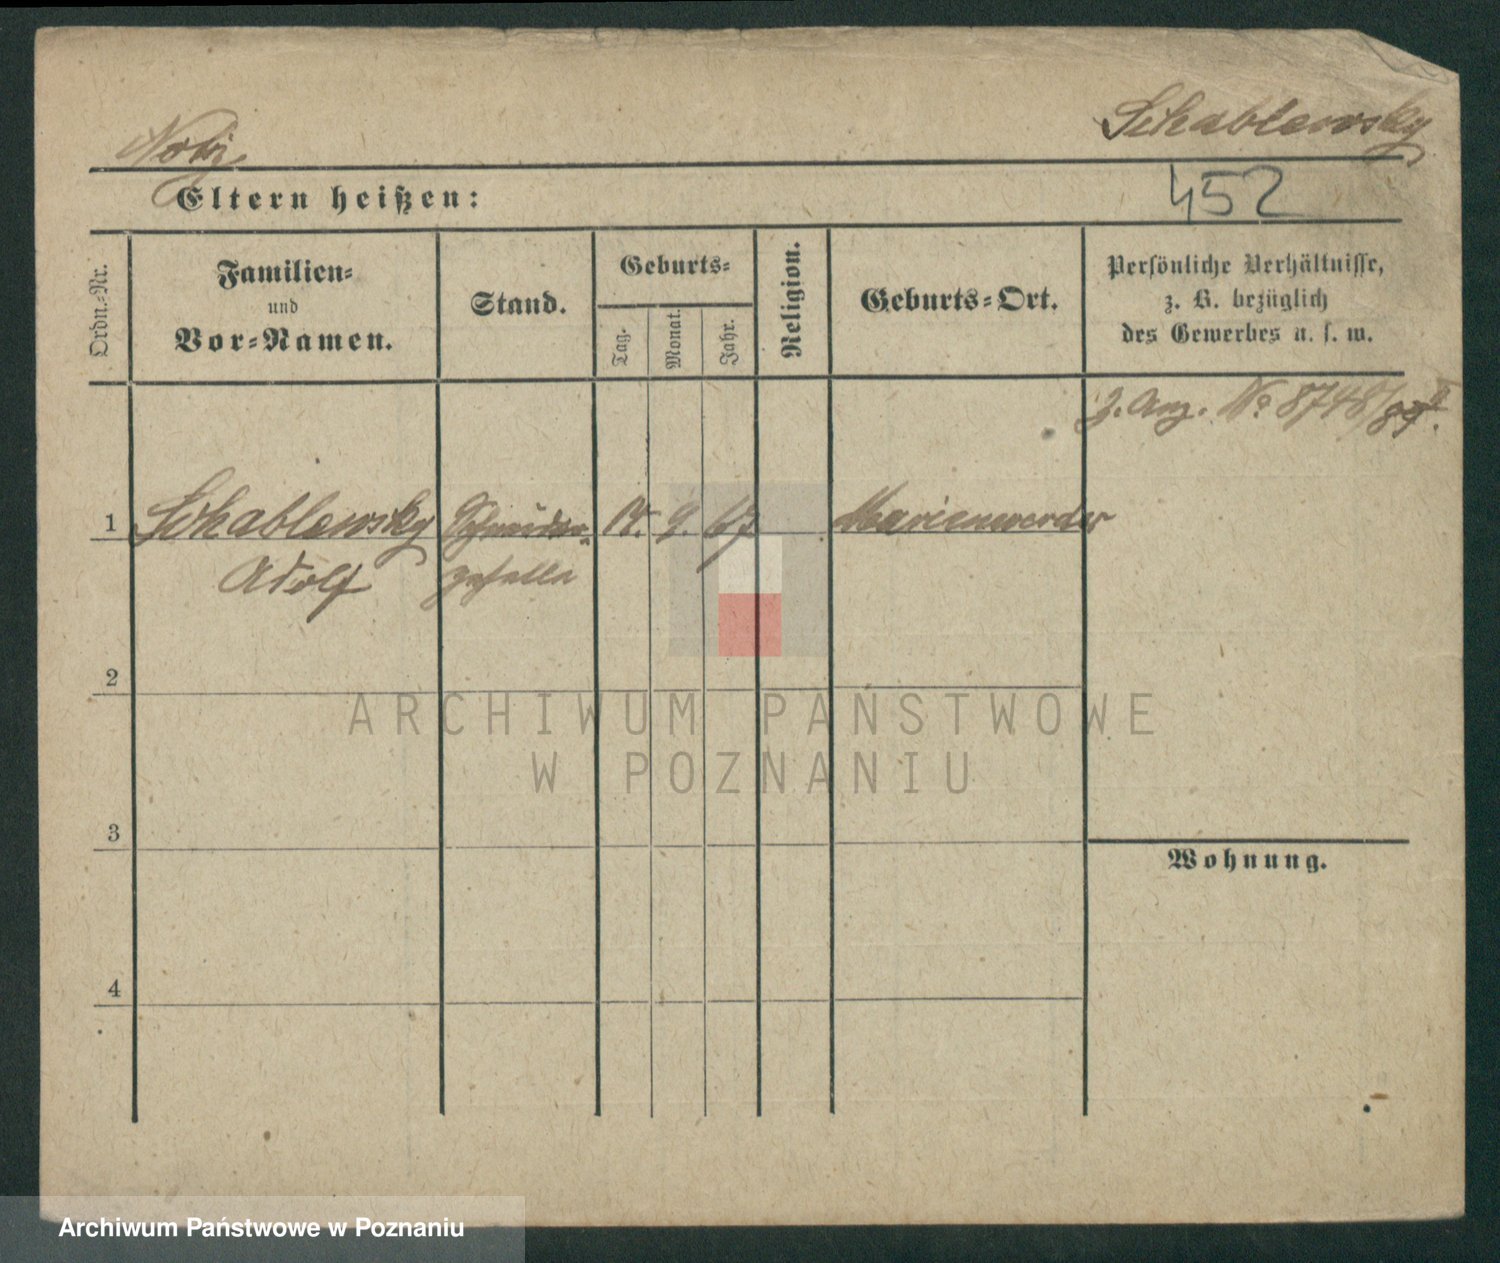 Notiz
Schablewsky
452
Eltern heißen:
Ordn.-Nr.
Familien-
und
Vor-Namen.
Stand.
Geburts-
Tag.
Monat.
Jahr.
Religion.
Geburts-Ort.
Persönliche Verhältnisse,
z. B. bezüglich
des Gewerbes u. s. w.
z. Anz. No 8748/89 II.
1 Schablewsky Schneider- 9. 67 Marienwerder
Adolf geselle
2
3
4
Wohnung.
ARCHIWUM PAŃSTWOWE
W POZNANIU
Archiwum Państwowe w Poznaniu